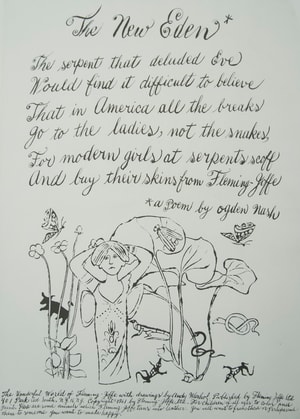 The New Eden*
The serpent that deluded Eve
Would find it difficult to believe
That in America all the breaks
go to the ladies, not the snakes!
For modern girls at serpents scoff
And buy their skins from Fleming-Joffe
*a Poem by Ogden Nash
The Wonderful World of Fleming Joffe with drawings by Andy Warhol. Published by Fleming Joffe Ltd.